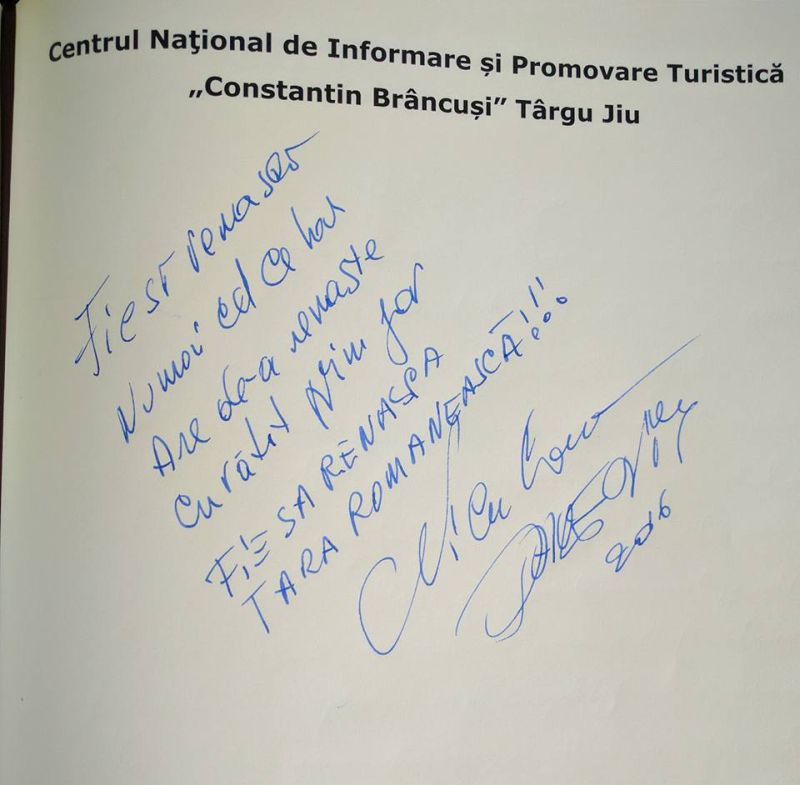 Centrul Naţional de Informare și Promovare Turistică
„Constantin Brâncuși” Târgu Jiu
Fiest renaste
Numai cel ce har
Are de-a renaste
Curătit prim jar
FIE SA RENASCA
TARA ROMANEASCĂ!!!
Nicu
2016